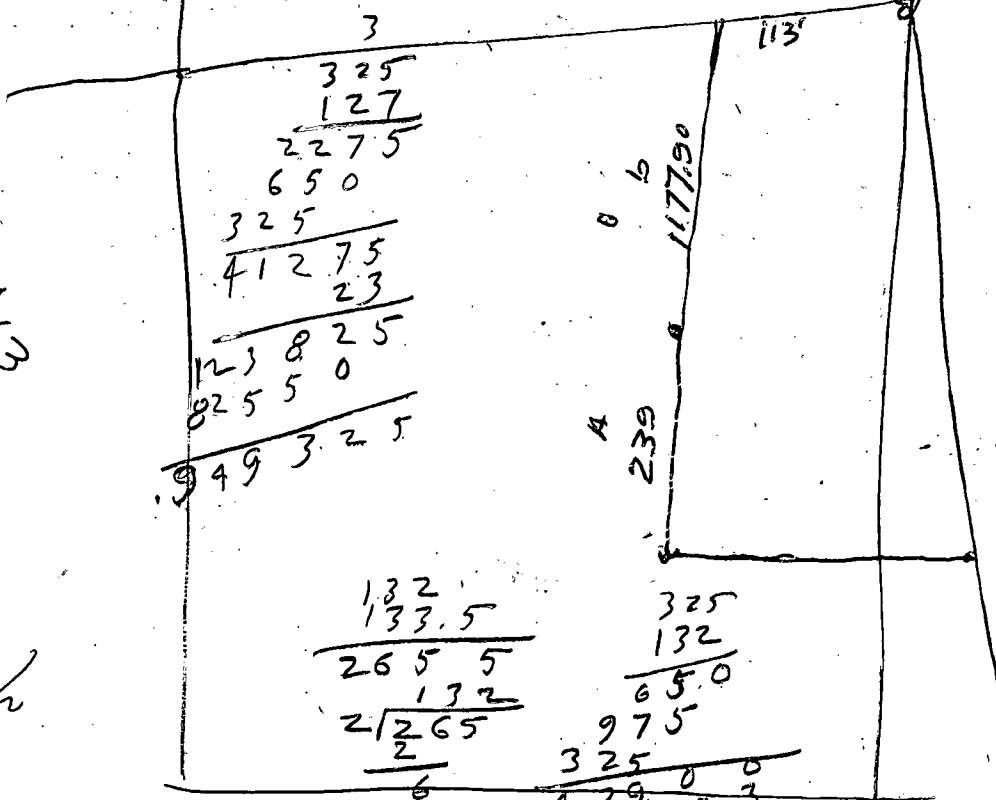 3
113'
325
127
2275
650
325
41275
23
123825
82550
.949325
b
1177.90
A
239
132
133.5
265 5
132
2/265
2
6
325
132
650
975
325